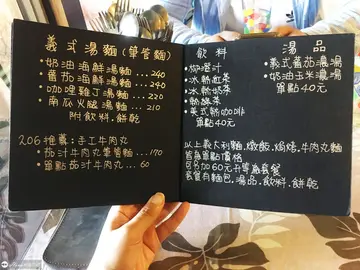 義式湯麵(筆管麵)
•奶油海鮮湯麵...240
•蕃茄海鮮湯麵...240
•咖哩雞丁湯麵...220
•南瓜火腿湯麵...210
附飲料.餅乾
206推薦:手工牛肉丸
•茄汁牛肉丸筆管麵...170
•單點茄汁牛肉丸...60
飲料
•柳橙汁
•冰熱紅茶
•冰熱奶茶
•熱綠茶
•美式熱咖啡
單點40元
湯品
•義式蕃茄濃湯
•奶油玉米濃湯
單點40元
以上義大利麵.燉飯.焗烤.牛肉丸麵
皆為單點價格
可另加60元升等為套餐
套餐有麵包.湯品.飲料.餅乾